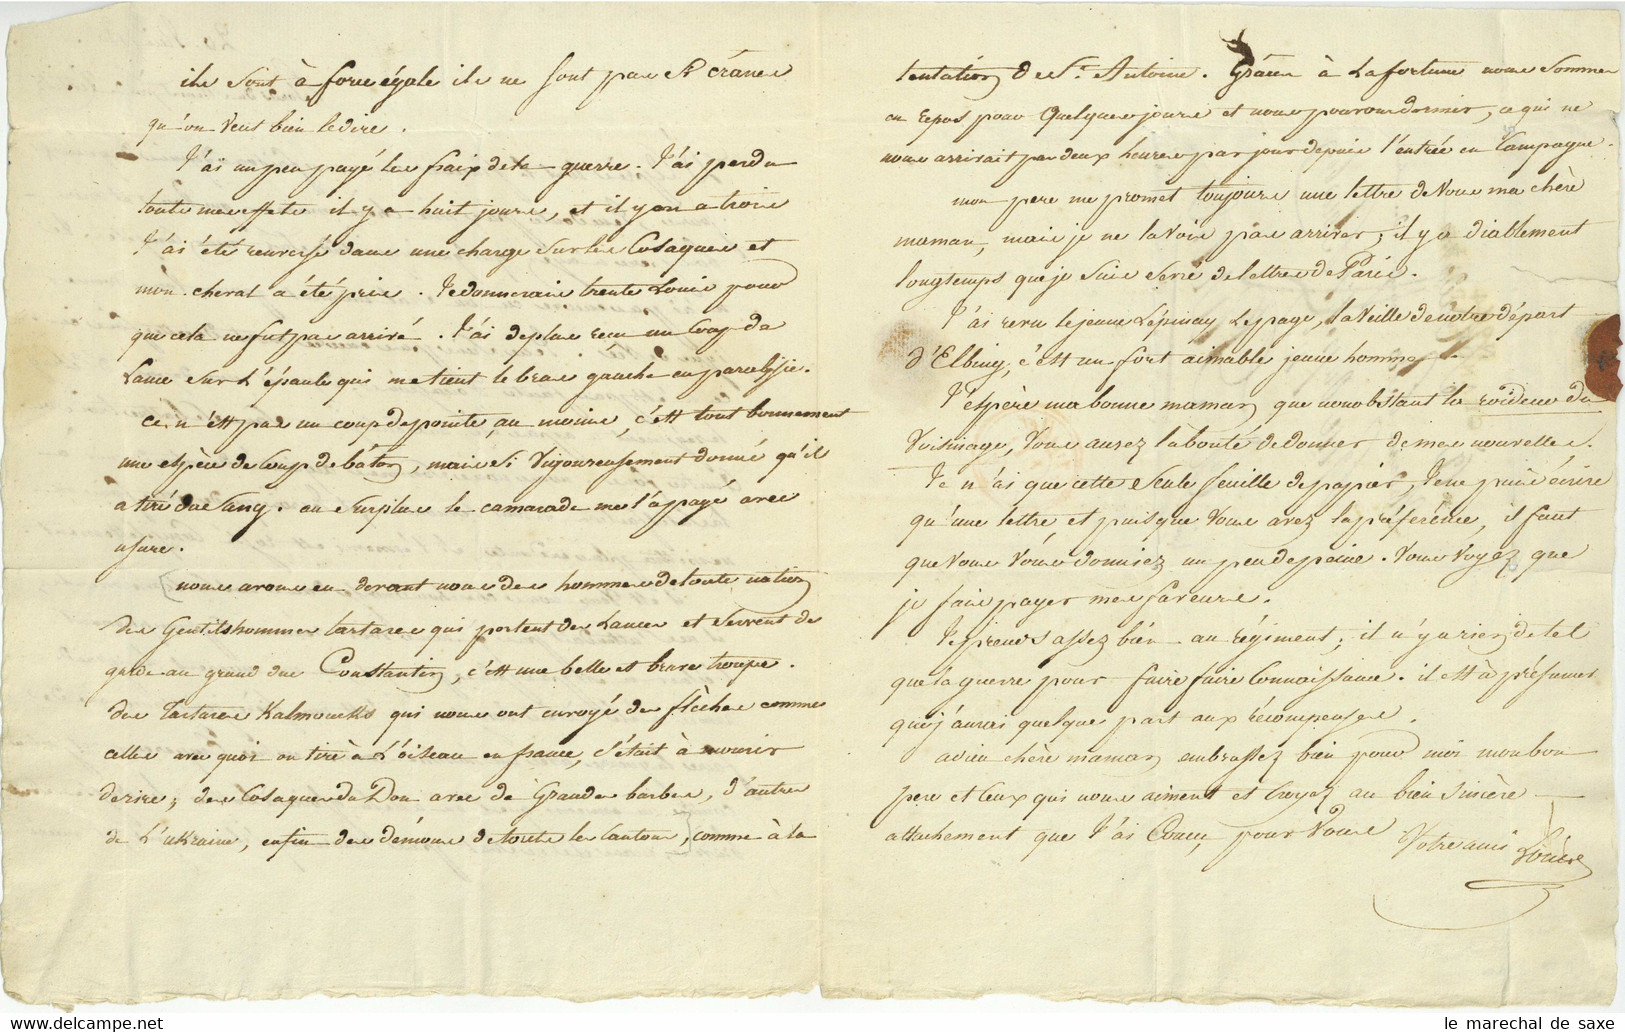 ils sont à force égale ils ne sont pas si crânes
qu'on veut bien le dire.
J'ai un peu payé les fraix de la guerre. J'ai perdu
toute mes effets il y a huit jours, et il y en a trois
J'ai été renversé dans une charge sur les Cosaques et
mon cheval a été pris. Je donnerais trente Louis pour
que cela ne fut pas arrivé. J'ai de plus recu un Coup de
Lance sur L'épaule qui me tient le bras gauche en paralysie.
ce n'est pas un coup de pointe au moins, c'est tout bonnement
une espèce de Coup de bâton, mais si vigoureusement donné qu'il
a tiré du sang. au surplus le camarade me l'a payé avec
usure.
nous avons eu devant nous des hommes de toute nation
des Gentilshommes tartares qui portent des Lances et servent de
garde au grand duc Constantin, c'est une belle et brave troupe.
des Tartares Kalmoucks qui nous ont envoyé des flèches comme
celles avec quoi on tire à L'oiseau en france, c'était à mourir
de rire; des Cosaques du Don avec de Grandes barbes, d'autres
de L'ukraine, enfin des démons de toute les Cantons, comme à la
tentation de St. Antoine. Grâces à La fortune nous sommes
en repos pour quelques jours et nous pouvons dormir, ce qui ne
nous arrivait pas deux heures par jour depuis l'entrée en Campagne.
mon pere me promet toujours une lettre de Vous ma chère
maman, mais je ne la vois pas arriver, il y a diablement
longtemps que je suis sevré de lettres de Paris.
J'ai revu le jeune Lépinay Le page, la veille de notre départ
d'Elbing, c'est un fort aimable jeune homme.
J'espère ma bonne maman que nonobstant la roideur du
Voisinage, Vous aurez la bonté de donner de mes nouvelles.
Je n'ai que cette seule feuille de papier, Je ne puis écrire
qu'une lettre, et puisque Vous avez la préférence, il faut
que Vous Vous donniez un peu de peine. Vous voyez que
je fais payer mes faveurs.
Je prens assez bien au régiment; il n'y a rien de tel
que la guerre pour faire faire Connaissance. il est à présumer
que j'aurai quelque part aux récompenses.
adieu chère maman embrassez bien pour moi mon bon
pere et Ceux qui nous aiment et Croyez au bien sincère
attachement que J'ai Concu pour Vous Votre ami
le marechal de saxe